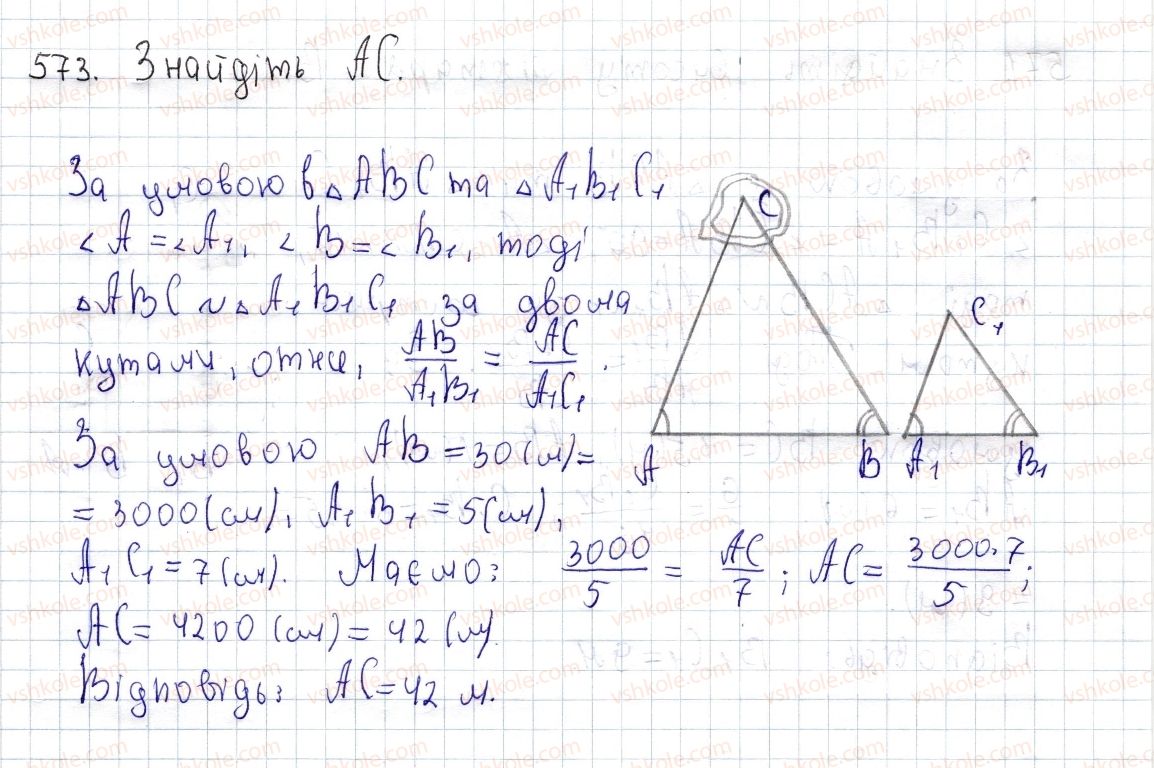 573. Знайдіть AC.
За умовою в △ABC та △A₁B₁C₁
∠A = ∠A₁, ∠B = ∠B₁, тоді
△ABC ~ △A₁B₁C₁ за двома
кутами, отже, AB/A₁B₁ = AC/A₁C₁.
За умовою AB = 30 (м) =
= 3000 (см), A₁B₁ = 5 (см),
A₁C₁ = 7 (см). Маємо: 3000/5 = AC/7; AC = 3000·7/5;
AC = 4200 (см) = 42 (м).
Відповідь: AC = 42 м.
C
C₁
A
B
A₁
B₁
vshkole.com